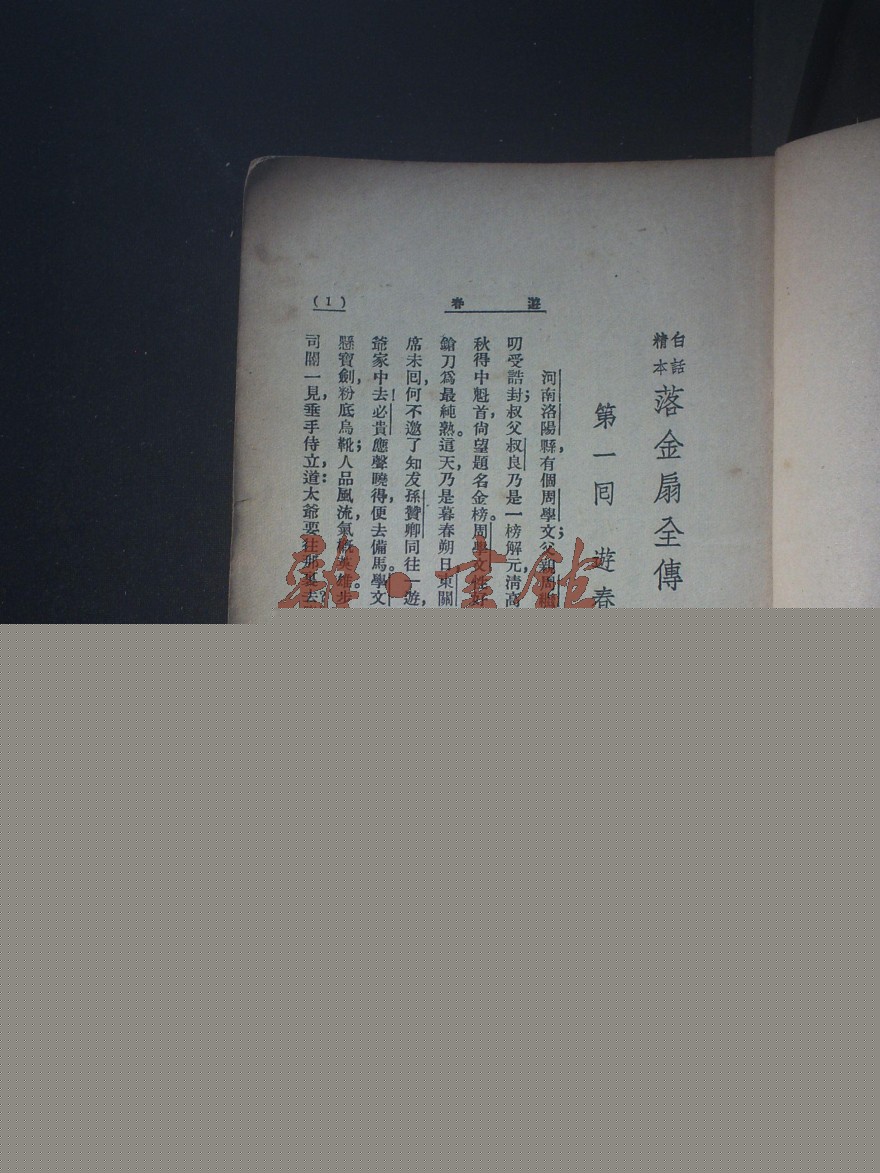 白話
精本
落金扇全傳
第一回 遊春
河南洛陽縣，有個周學文；父親周繼
叨受誥封；叔父叔良乃是一榜解元，清高
秋得中魁首，尙望題名金榜。周學文性好
鎗刀爲最純熟。這天，乃是暮春朔日東關
席未回，何不邀了知友孫贊卿同往一遊，
爺家中去！必貴應聲曉得，便去備馬。學文
懸寶劍，粉底烏靴；人品風流，氣概英雄。步
司閽一見，垂手侍立，道：太爺要往那裏去？
遊春
(1)
書館